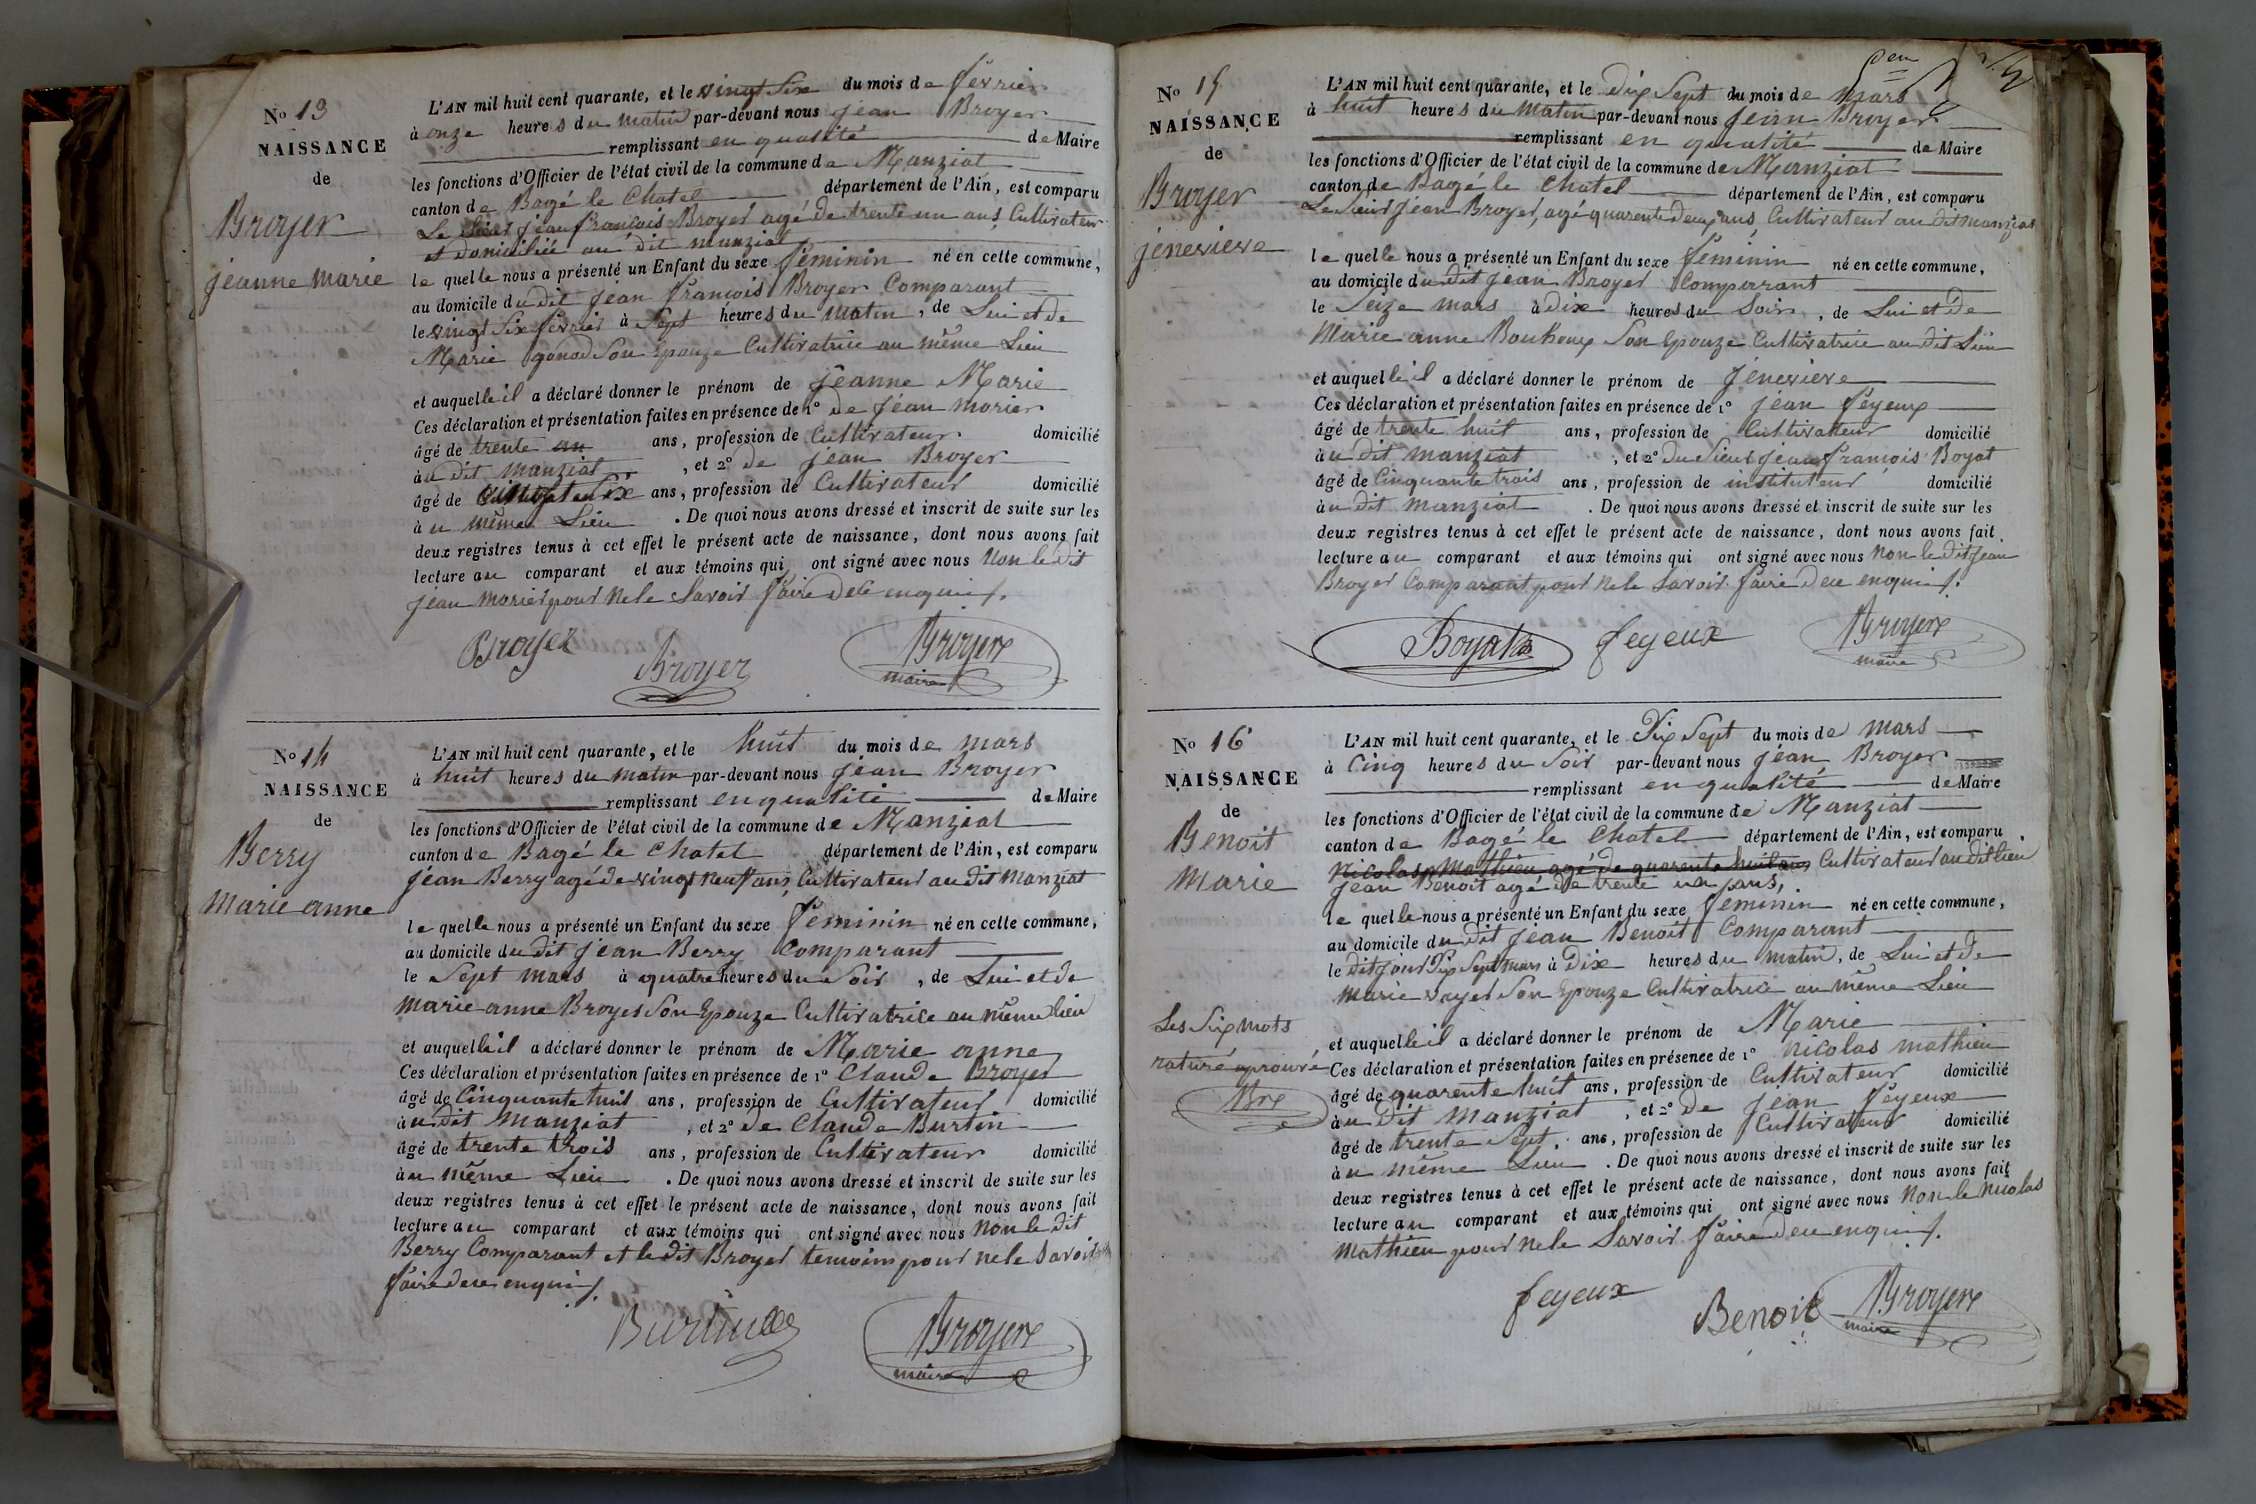 No 13
NAISSANCE
de
Broyer
jeanne marie
L'AN mil huit cent quarante, et le vingt Six du mois de février
à onze heures du matin par-devant nous jean Broyer
remplissant en qualité de Maire
les fonctions d'Officier de l'état civil de la commune de Manziat
canton de Bagé le Chatel département de l'Ain, est comparu
Le Sieur jean françois Broyer agé de trente un ans, Cultivateur
et domicilié au dit manziat
le quelle nous a présenté un Enfant du sexe féminin né en cette commune,
au domicile du dit jean françois Broyer Comparant
le vingt Six février à Sept heures du matin, de Lui et de
Marie gonod Son Epouze Cultivatrice au même Lieu
et auquelle il a déclaré donner le prénom de jeanne Marie
Ces déclaration et présentation faites en présence de 1° de jean morier
âgé de trente an ans, profession de Cultivateur domicilié
à u dit manziat, et 2° de jean Broyer
âgé de Six ans, profession de Cultivateur domicilié
à u même Lieu. De quoi nous avons dressé et inscrit de suite sur les
deux registres tenus à cet effet le présent acte de naissance, dont nous avons fait
lecture au comparant et aux témoins qui ont signé avec nous Non le dit
jean morier pour ne le Savoir faire de ce enquis /.
Broyer
Broyer
Broyer
maire
No 14
NAISSANCE
de
Berry
marie anne
L'AN mil huit cent quarante, et le huit du mois de mars
à huit heures du matin par-devant nous jean Broyer
remplissant en qualité de Maire
les fonctions d'Officier de l'état civil de la commune de Manziat
canton de Bagé le Chatel département de l'Ain, est comparu
jean Berry agé de vingt neuf ans, Cultivateur au dit Manziat
le quelle nous a présenté un Enfant du sexe féminin né en cette commune,
au domicile du dit jean Berry Comparant
le Sept mars à quatre heures du Soir, de Lui et de
marie anne Broyer Son Epouze Cultivatrice au même lieu
et auquelle il a déclaré donner le prénom de Marie anne
Ces déclaration et présentation faites en présence de 1° Claude Broyer
âgé de Cinquante huit ans, profession de Cultivateur domicilié
à u dit Manziat, et 2° de Claude Burtin
âgé de trente trois ans, profession de Cultivateur domicilié
à u même Lieu. De quoi nous avons dressé et inscrit de suite sur les
deux registres tenus à cet effet le présent acte de naissance, dont nous avons fait
lecture au comparant et aux témoins qui ont signé avec nous Non le dit
Berry Comparant et le dit Broyer temoins pour ne le Savoir
faire de ce enquis /.
Broyer
maire
No 15
NAISSANCE
de
Broyer
jenevieve
L'AN mil huit cent quarante, et le Dix Sept du mois de mars
à huit heures du matin par-devant nous jean Broyer
remplissant en qualité de Maire
les fonctions d'Officier de l'état civil de la commune de Manziat
canton de Bagé le Chatel département de l'Ain, est comparu
Le Sieur jean Broyer, agé quarente deux ans, Cultivateur au dit manziat
le quelle nous a présenté un Enfant du sexe féminin né en cette commune,
au domicile du dit jean Broyer Comparant
le Seize mars à dix heures du Soir, de Lui et de
Marie anne Son Epouze Cultivatrice au dit Lieu
et auquelle il a déclaré donner le prénom de jenevieve
Ces déclaration et présentation faites en présence de 1° jean feyeux
âgé de trente huit ans, profession de Cultivateur domicilié
à u dit manziat, et 2° du Sieur jean françois Boyat
âgé de Cinquante trois ans, profession de instituteur domicilié
à u dit manziat. De quoi nous avons dressé et inscrit de suite sur les
deux registres tenus à cet effet le présent acte de naissance, dont nous avons fait
lecture au comparant et aux témoins qui ont signé avec nous Non le dit jean
Broyer Comparant pour ne le Savoir faire de ce enquis /.
Boyat
feyeux
Broyer
maire
No 16
NAISSANCE
de
Benoit
marie
Les Six mots
raturé aprouvé
L'AN mil huit cent quarante, et le Dix Sept du mois de mars
à Cinq heures du Soir par-devant nous jean Broyer
remplissant en qualité de Maire
les fonctions d'Officier de l'état civil de la commune de Manziat
canton de Bagé le Chatel département de l'Ain, est comparu
Nicolas Mathieu agé de quarente huit ans Cultivateur au dit lieu
jean Benoit agé de trente un ans,
le quelle nous a présenté un Enfant du sexe féminin né en cette commune,
au domicile du dit jean Benoit Comparant
le dit jour Dix Sept mars à Dix heures du matin, de Lui et de
marie Son Epouze Cultivatrice au même Lieu
et auquelle il a déclaré donner le prénom de Marie
Ces déclaration et présentation faites en présence de 1° Nicolas mathieu
âgé de quarente huit ans, profession de Cultivateur domicilié
à u dit Manziat, et 2° de jean feyeux
âgé de trente Sept ans, profession de Cultivateur domicilié
à u même Lieu. De quoi nous avons dressé et inscrit de suite sur les
deux registres tenus à cet effet le présent acte de naissance, dont nous avons fait
lecture au comparant et aux témoins qui ont signé avec nous Non le Nicolas
Mathieu pour ne le Savoir faire de ce enquis /.
feyeux
Benoit
Broyer
maire